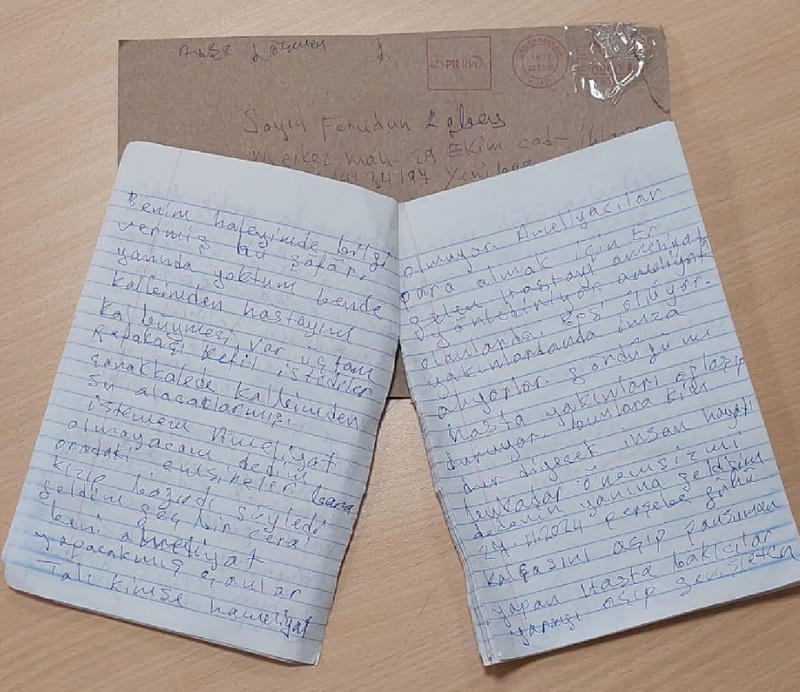 Sayın Feridun
merkez mah. 29 Ekim cad.
34197
Benim haleyimde bilgi
vermiş bu
yanında yoktum bende
kalbimden hastayım
kalbüyümesi var üçtane
kapakası kefil istediler
Çanakkalede kalbimden
sy alacaklarmışı
istemem Ameliyat
almayacam dedim
oradaki emşireler bana
kızıp bağırdı söyledi
geldim geç bin cera
beni ameliyat
yapacakmış
Tali kimse hameliyat
olmuyor. Ameliyacılar
para almak için Er
gelen hastayı ameliyata
yönlediriyor ameliyat
olanlarda ölüyor.
yakınlarındanda imza
alıyorlar. gördüğümü
hasta yakınları
duruyor. bunlara kim
dur diyecek insan hayatı
bukadar önemsiz mi
dedenin yanına geldiğim
24.11.2024 perşebe günü
kalçasını açıp pansuman
yapan Hasta bakıcılar
yarayı açıp